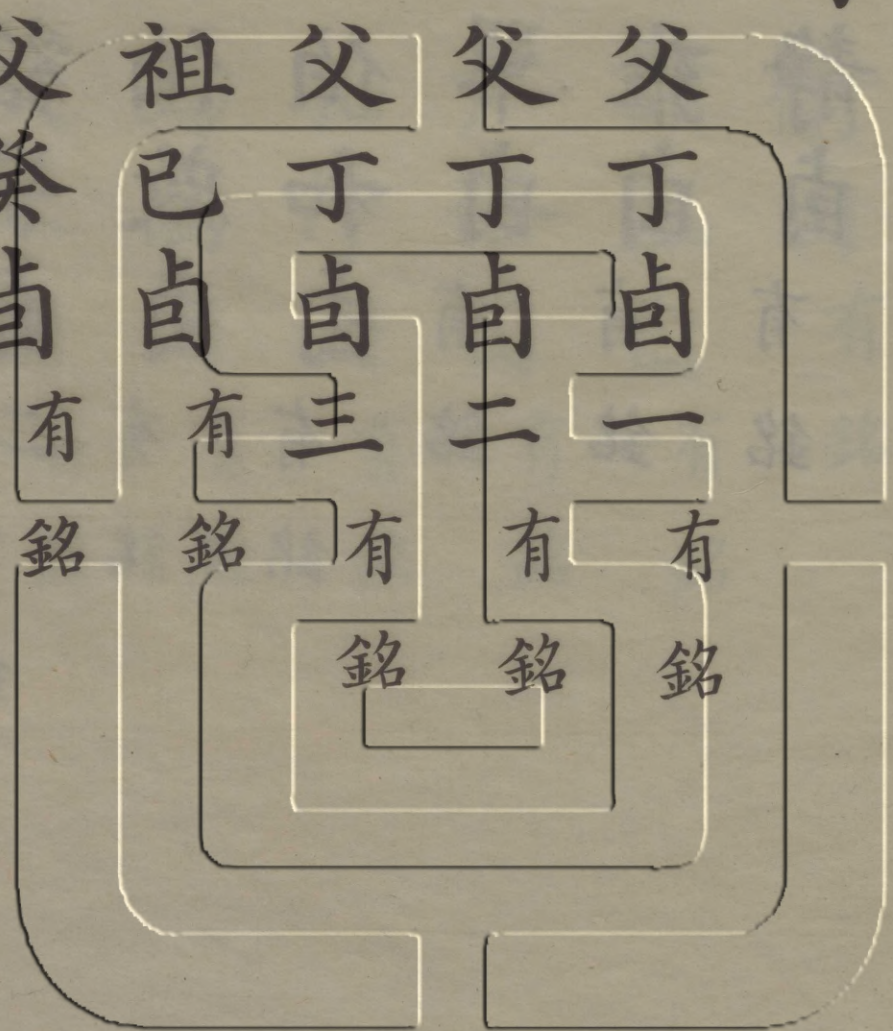 父丁卣一有銘
父丁卣二有銘
父丁卣三有銘
祖已卣有銘
父癸卣有銘